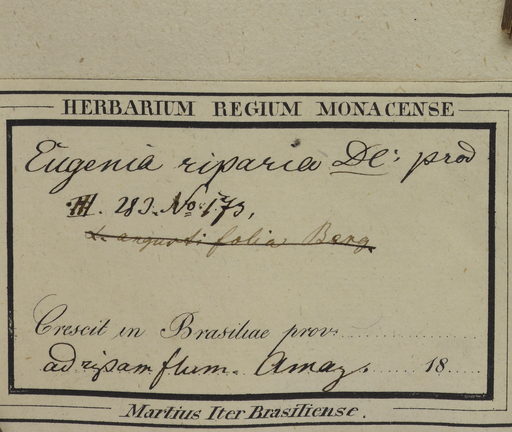 HERBARIUM REGIUM MONACENSE
Eugenia riparia DC: prod
III. 283. No. 173,
α. angustifolia Berg.
Crescit in Brasiliae prov.
ad ripam flum. Amaz. 18
Martius Iter Brasiliense.